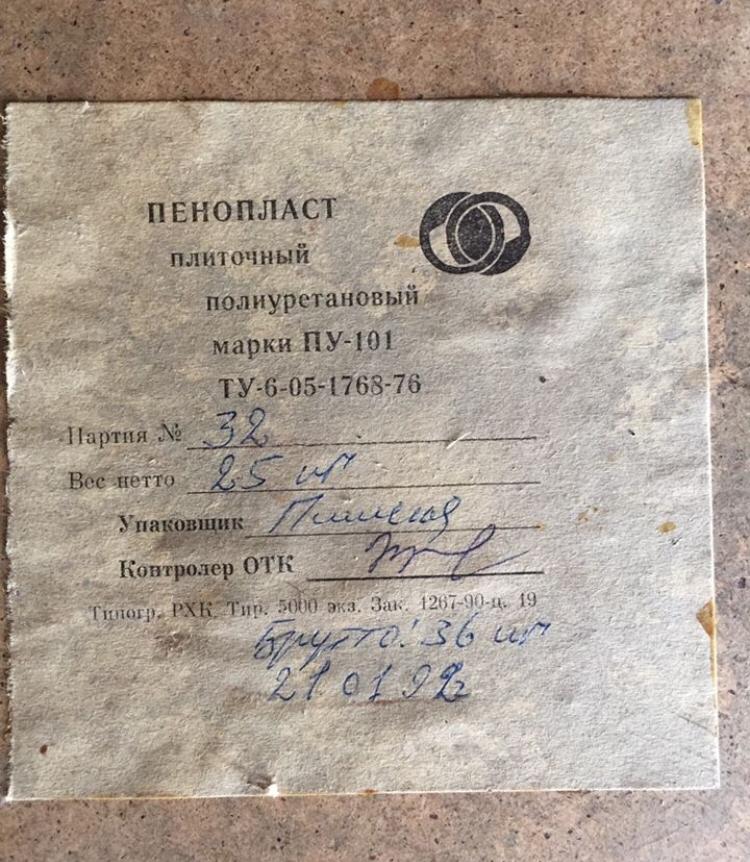 ПЕНОПЛАСТ
плиточный
полиуретановый
марки ПУ-101
ТУ-6-05-1768-76
Партия № 32
Вес нетто 25 кг
Упаковщик
Контролер ОТК
Типогр. РХК. Тир. 5000 экз. Зак. 1267-90-ц. 19
Брутто: 36 кг
21 01 92г